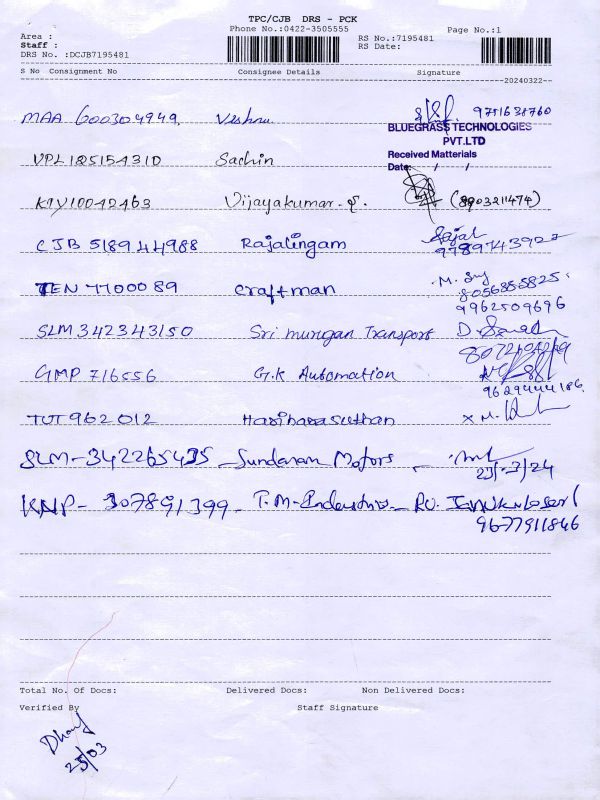 TPC/CJB DRS - PCK
Phone No.:0422-3505555
Page No.:1
Area :
Staff :
RS No.:7195481
DRS No. :DCJB7195481
RS Date:
S No Consignment No Consignee Details Signature
20240322
MAA 600304949. Vishnu 9751631760
BLUEGRASS TECHNOLOGIES
PVT.LTD
Received Matterials
Date: / /
VPL125154310 Sachin
K1Y10042463 Vijayakumar (8903211474)
CJB 518944988 Rajalingam Rajal
9789743927
TEN 7700089 Craftman
8056355825
9962509696
SLM 342343150 Sri murugan Transport
GMP 716556 G.K Automation
9629444186
TUT 962012 Hariharasuthan
SLM-342265435 Sundaram Motors
23/3/24
KNP- 307891399 T.M-
9677911846
Total No. Of Docs: Delivered Docs: Non Delivered Docs:
Verified By Staff Signature
25/03